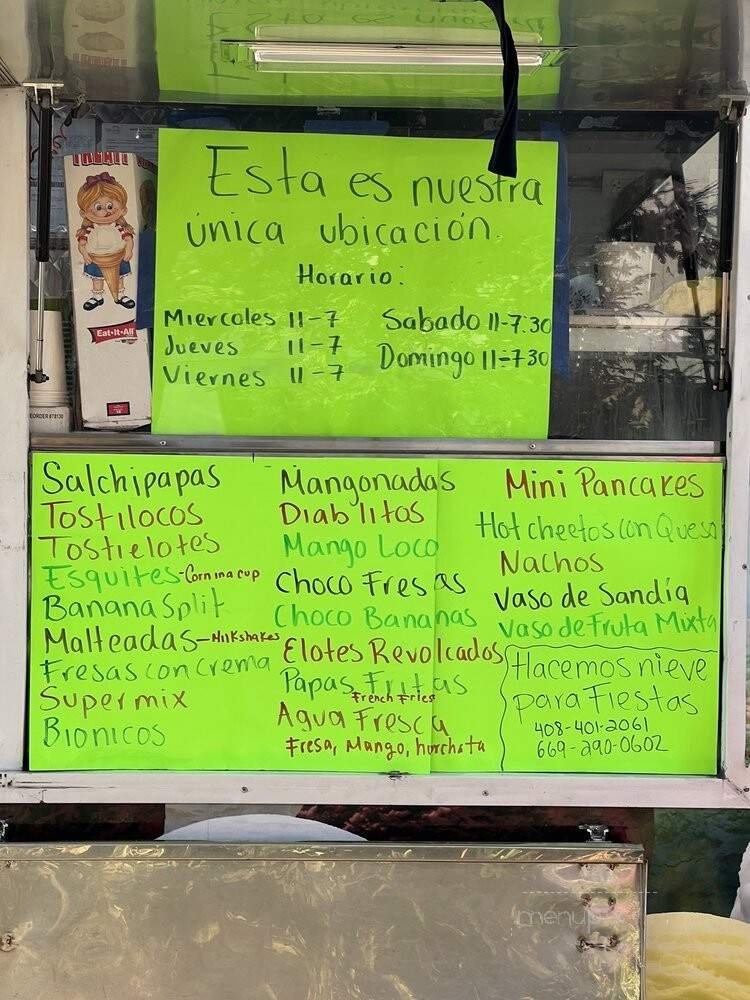 TREAT!
Eat-It-All
REORDER #78130
Esta es nuestra
única ubicación.
Horario:
Miercoles 11-7
Jueves 11-7
Viernes 11-7
Sabado 11-7:30
Domingo 11-7:30
Salchipapas
Tostilocos
Tostielotes
Esquites-Corn in a cup
Banana Split
Malteadas-Milkshakes
Fresas con Crema
Supermix
Bionicos
Mangonadas
Diablitos
Mango Loco
Choco Fresas
Choco Bananas
Elotes Revolcados
Papas Fritas
French Fries
Agua Fresca
Fresa, Mango, horchata
Mini Pancakes
Hot cheetos con Queso
Nachos
Vaso de Sandía
Vaso de Fruta Mixta
Hacemos nieve
para Fiestas
408-401-2061
669-290-0602